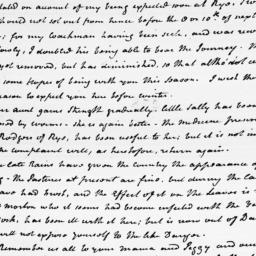 on account of my being expected soon at Rye. I wo
should not set out from hence before the 8 or 10th of Sept
; for my Coachman having been sick, and was reco
slowly, I doubted his being able to bear the Journey.
not removed, but has diminished, so that altho' I ca
some hopes of being with you this Season. I wish the
reason to expect you here before winter.
aunt gains strength gradually. little Sally has been
by worms. she is again better. the medicine
Rodgers of Rye, has been useful to her; but it is not in
the complaint will, as heretofore, return again.
late Rains have given the Country the appearance of
The Pastures at present are fine. but during the
have had much, and the Effect of it on the Leaves is
Morton who it seems had become infected with the
York, has been ill with it here; but is now out of Dan
will not expose yourself to the like Danger.
Remember us all to your Mama and Peggy and